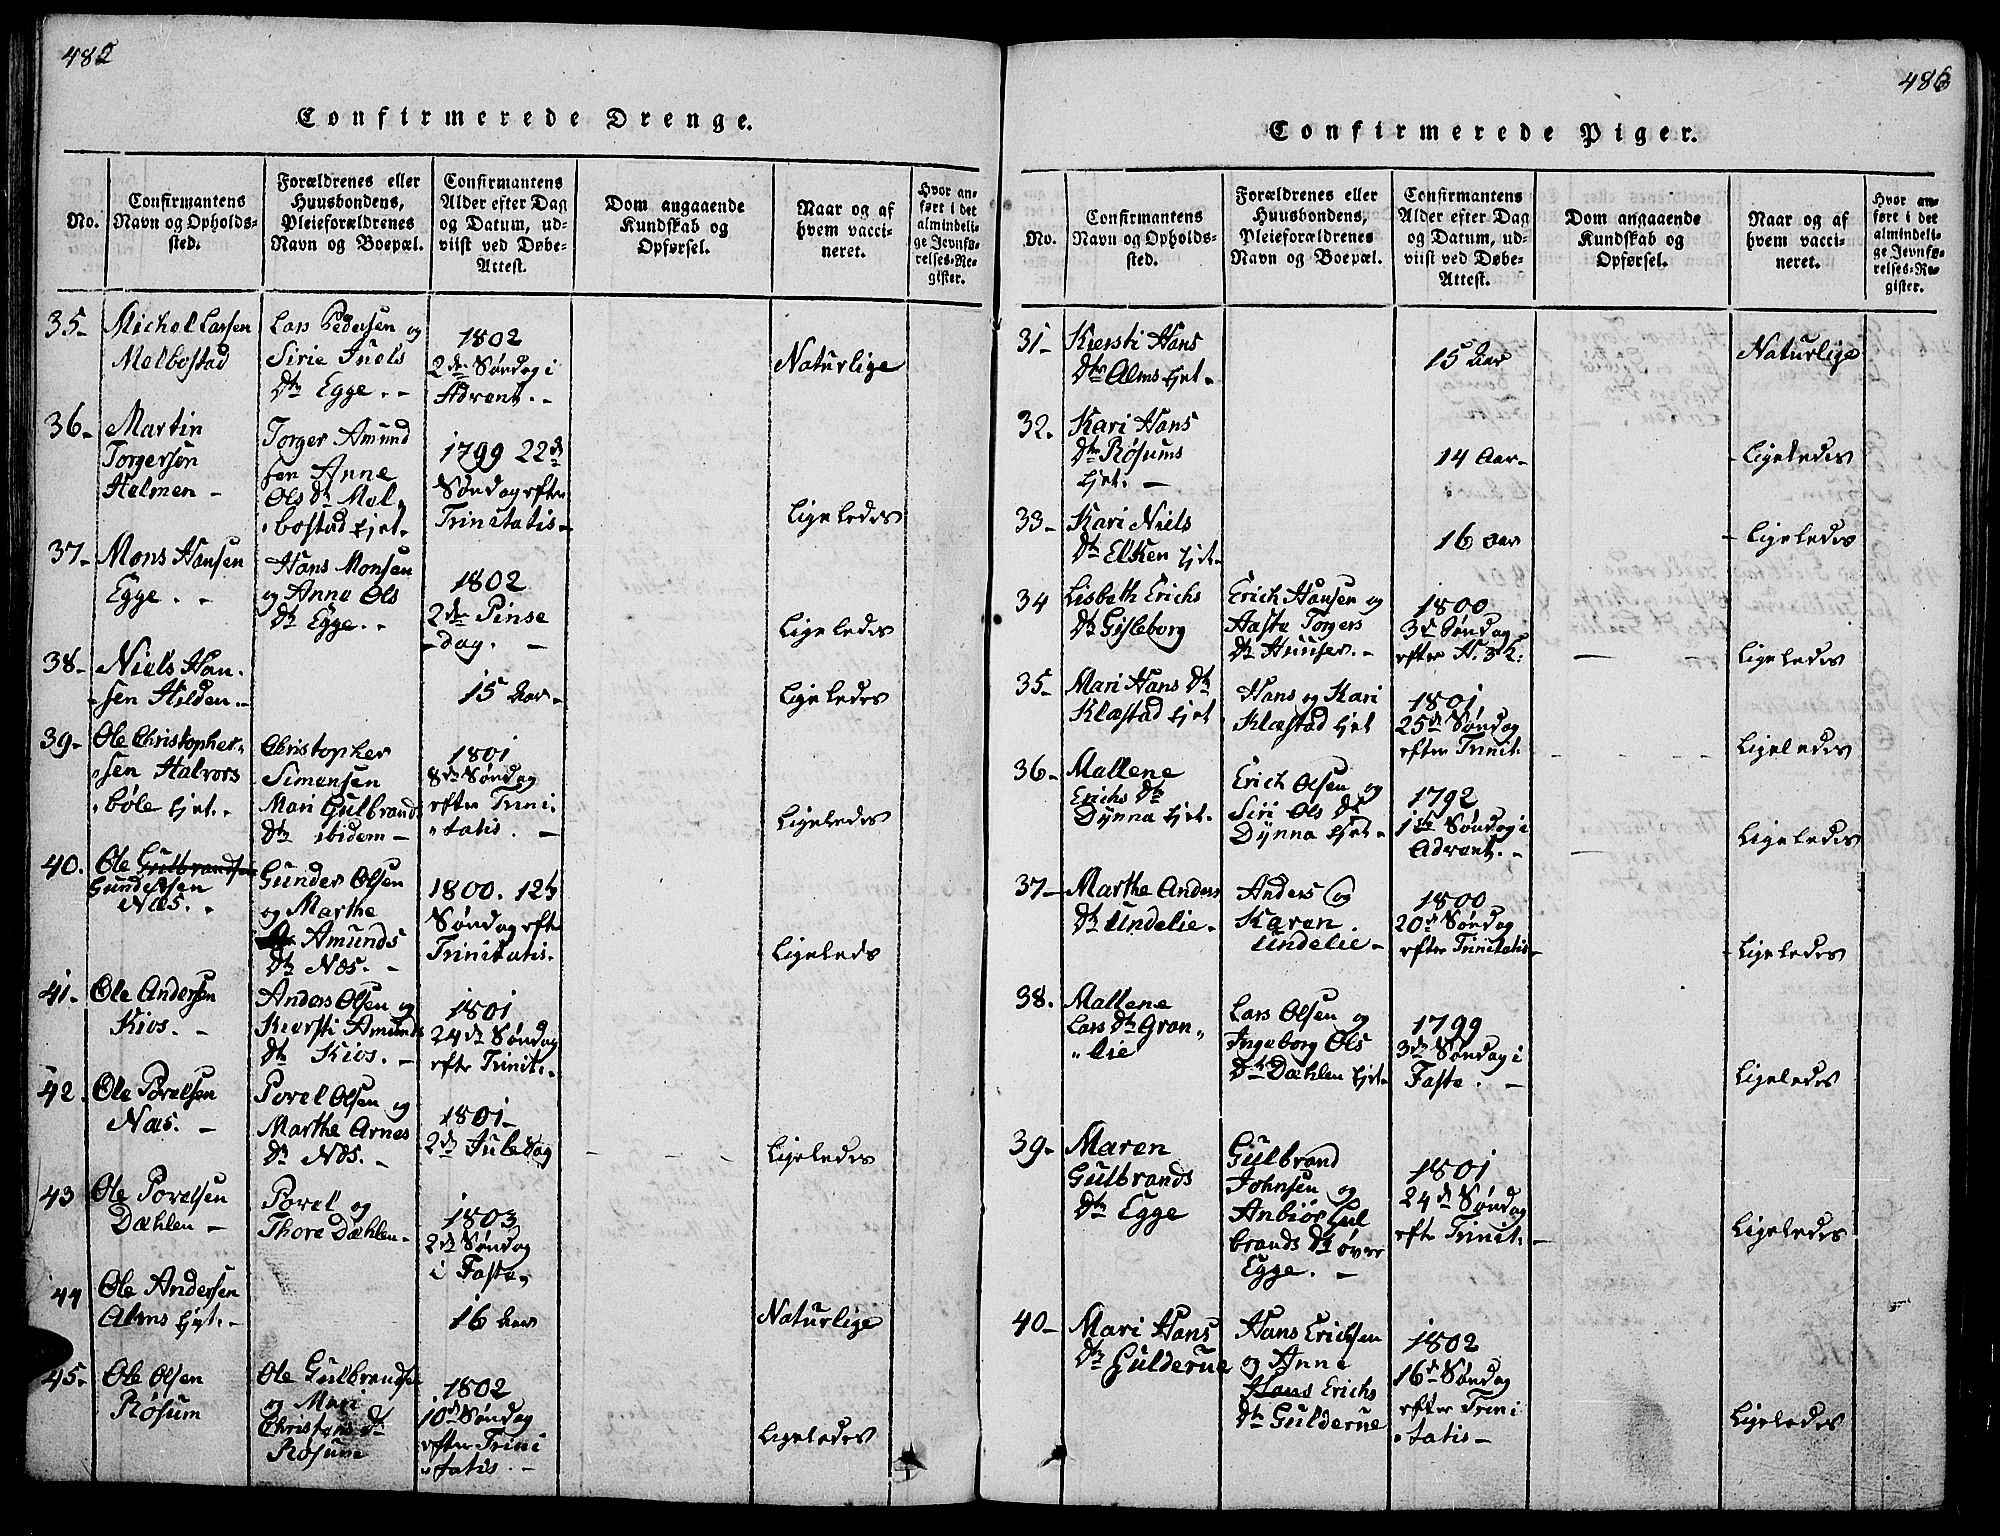 482
Confirmerede Drenge.
No.
Confirmantens
Navn og Opholds-
sted.
Forældrenes eller
Huusbondens,
Pleieforældrenes
Navn og Boepæl.
Confirmantens
Alder efter Dag
og Datum, ud-
viist ved Døbe-
Attest.
Dom angaaende
Kundskab og
Opførsel.
Naar og af
hvem vacci-
neret.
Hvor an-
ført i det
almindeli-
ge Jevnfø-
relses-Re-
gister.
35-
Michel Larsen
Melbostad
Lars Pedersen og
Sirie Juels
Dtr Egge. -
1802
2den Søndag i
Advent. -
Naturlige
36-
Martin
Torgersøn
Helmen -
Torger Amund
sen Anne
Ols Dtr Mel„
„bostad Ejet.
1799 22de
Søndag efter
Trinitatis-
Ligeledes
37-
Mons Hansen
Egge. -
Hans Monsen
og Anne Ols
Dtr Egge. -
1802
2den Pinse
-dag. -
Ligeledes
38-
Niels Han-
-sen Hilden.-
15 Aar-
Ligeledes
39-
Ole Christopher„
„sen Halvors
„bøle Ejet.-
Christopher
Simensen
Mari Gulbrands
Dtr ibidem-
1801
8de Søndag
efter Trini„
„tatis. -
Ligeledes
40.
Ole Gulbrandsen
Gundersen
Næs. -
Gunder Olsen
og Marthe
Amunds
Dtr Næs. -
1800. 12te
Søndag efter
Trinitatis.
Ligeleds
41-
Ole Andersen
Kios. -
Anders Olsen og
Kiersti Amunds
Dtr Kios. -
1801
24de Søndag
efte Trinit:-
42.
Ole Povelsen
Næs. -
Povel Olsen og
Marthe Arnes
Dtr Næs. -
1801-
2de Juledag
Ligeledes
43
Ole Povelsen
Dæhlen -
Povel og
Thore Dæhlen-
1803
2de Søndag
i Faste„
44
Ole Andersen
Alms Ejet.-
16 Aar
Naturlige
45-
Ole Olsen
Røsum
Ole Gulbrandsen
og Mari
Christens Dtr
Røsum
1802
10de Søndag
efter Trini
„tatis. -
Ligeledes
486
Confirmerede Piger.
No.
Confirmantens
Navn og Opholds-
sted.
Forældrenes eller
Huusbondens,
Pleieforældrenes
Navn og Boepæl.
Confirmantens
Alder efter Dag
og Datum, ud-
viist ved Døbe-
Attest.
Dom angaaende
Kundskab og
Opførsel.
Naar og af
hvem vacci-
neret.
Hvor an-
ført i det
almindeli-
ge Jevnfø-
relses-Re-
gister.
31-
Kiersti Hans
Dtr Alms Ejet.
15 Aar
Naturlige
32.
Kari Hans
Dtr Røsums
Ejet. -
14 Aar-
Ligeledes
33-
Kari Niels
Dtr Elken Ejet-
16 Aar
Ligeledes
34
Lisbeth Erichs
Dtr Gisleborg
Erich Hansen og
Aaste Torgers
Dtr Huuser.-
1800
3de Søndag
efter H. 3 K:
Ligeledes
35-
Mari Hans Dtr
Klæstad Ejet
Hans og Kari
Klæstad Ejet
1801
25de Søndag
efter Trinit:
Ligeledes
36-
Mallene
Erichs Dtr
Dynna Ejet.-
Erich Olsen og
Siri Ols Dtr
Dynna Ejet-
1792
1ste Søndag i
Advent. -
Ligeledes
37-
Marthe Anders
Dtr Undelie.
Anders og
Karen.
Undelie-
1800
20de Søndag
efter Trinitatis-
Ligeledes
38.
Mallene
Lars Dtr Gran„
„lie
Lars Olsen og
Ingeborg Ols
Dtr Dæhlen Ejet-
1799
3de Søndag i
Faste. -
Ligeledes
39-
Maren
Gulbrands
Dtr Egge
Gulbrand
Johnsen og
Anbiør Gul
brands Dtr øvre
Egge. -
1801
24de Søndag
efte Trinit:
Ligeledes
40-
Mari Hans
Dtr Gulderue
Hans Erichsen
og Anne
Hans Erichs
Dtr Gulderue
1802
16de Søndag
efter Trini
„tatis-
Ligeledes